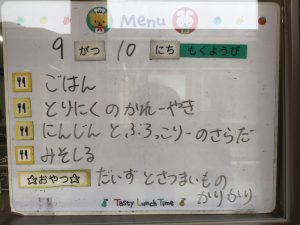 Menu
9 がつ 10 にち もくようび
ごはん
とりにくのかれーやき
にんじんとぶろっこりーのさらだ
みそしる
☆おやつ☆ だいずとさつまいもの
かりかり
Tasty Lunch Time